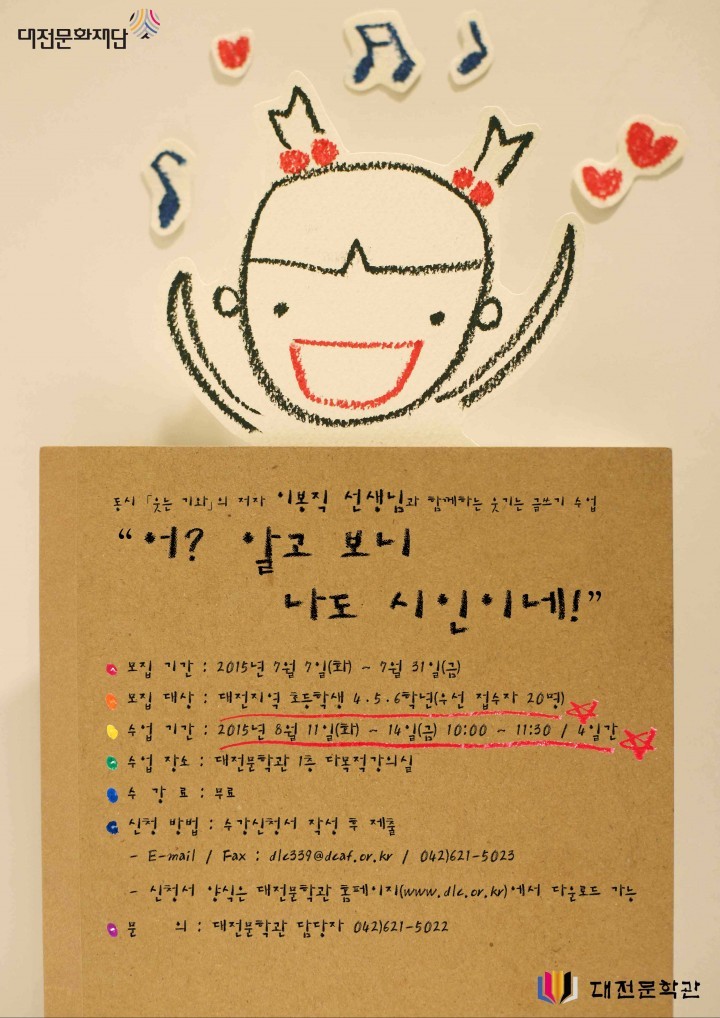 대전문화재단
동시 「웃는 기와」의 저자 이봉직 선생님과 함께하는 웃기는 글쓰기 수업
“어? 알고 보니
나도 시인이네!”
모집 기간 : 2015년 7월 7일(화) ~ 7월 31일(금)
모집 대상 : 대전지역 초등학생 4·5·6학년(우선 접수자 20명)
수업 기간 : 2015년 8월 11일(화) ~ 14일(금) 10:00 ~ 11:30 / 4일간
수업 장소 : 대전문학관 1층 다목적강의실
수 강 료 : 무료
신청 방법 : 수강신청서 작성 후 제출
- E-mail / Fax : dlc339@dcaf.or.kr / 042)621-5023
- 신청서 양식은 대전문학관 홈페이지(www.dlc.or.kr)에서 다운로드 가능
문 의 : 대전문학관 담당자 042)621-5022
대전문학관